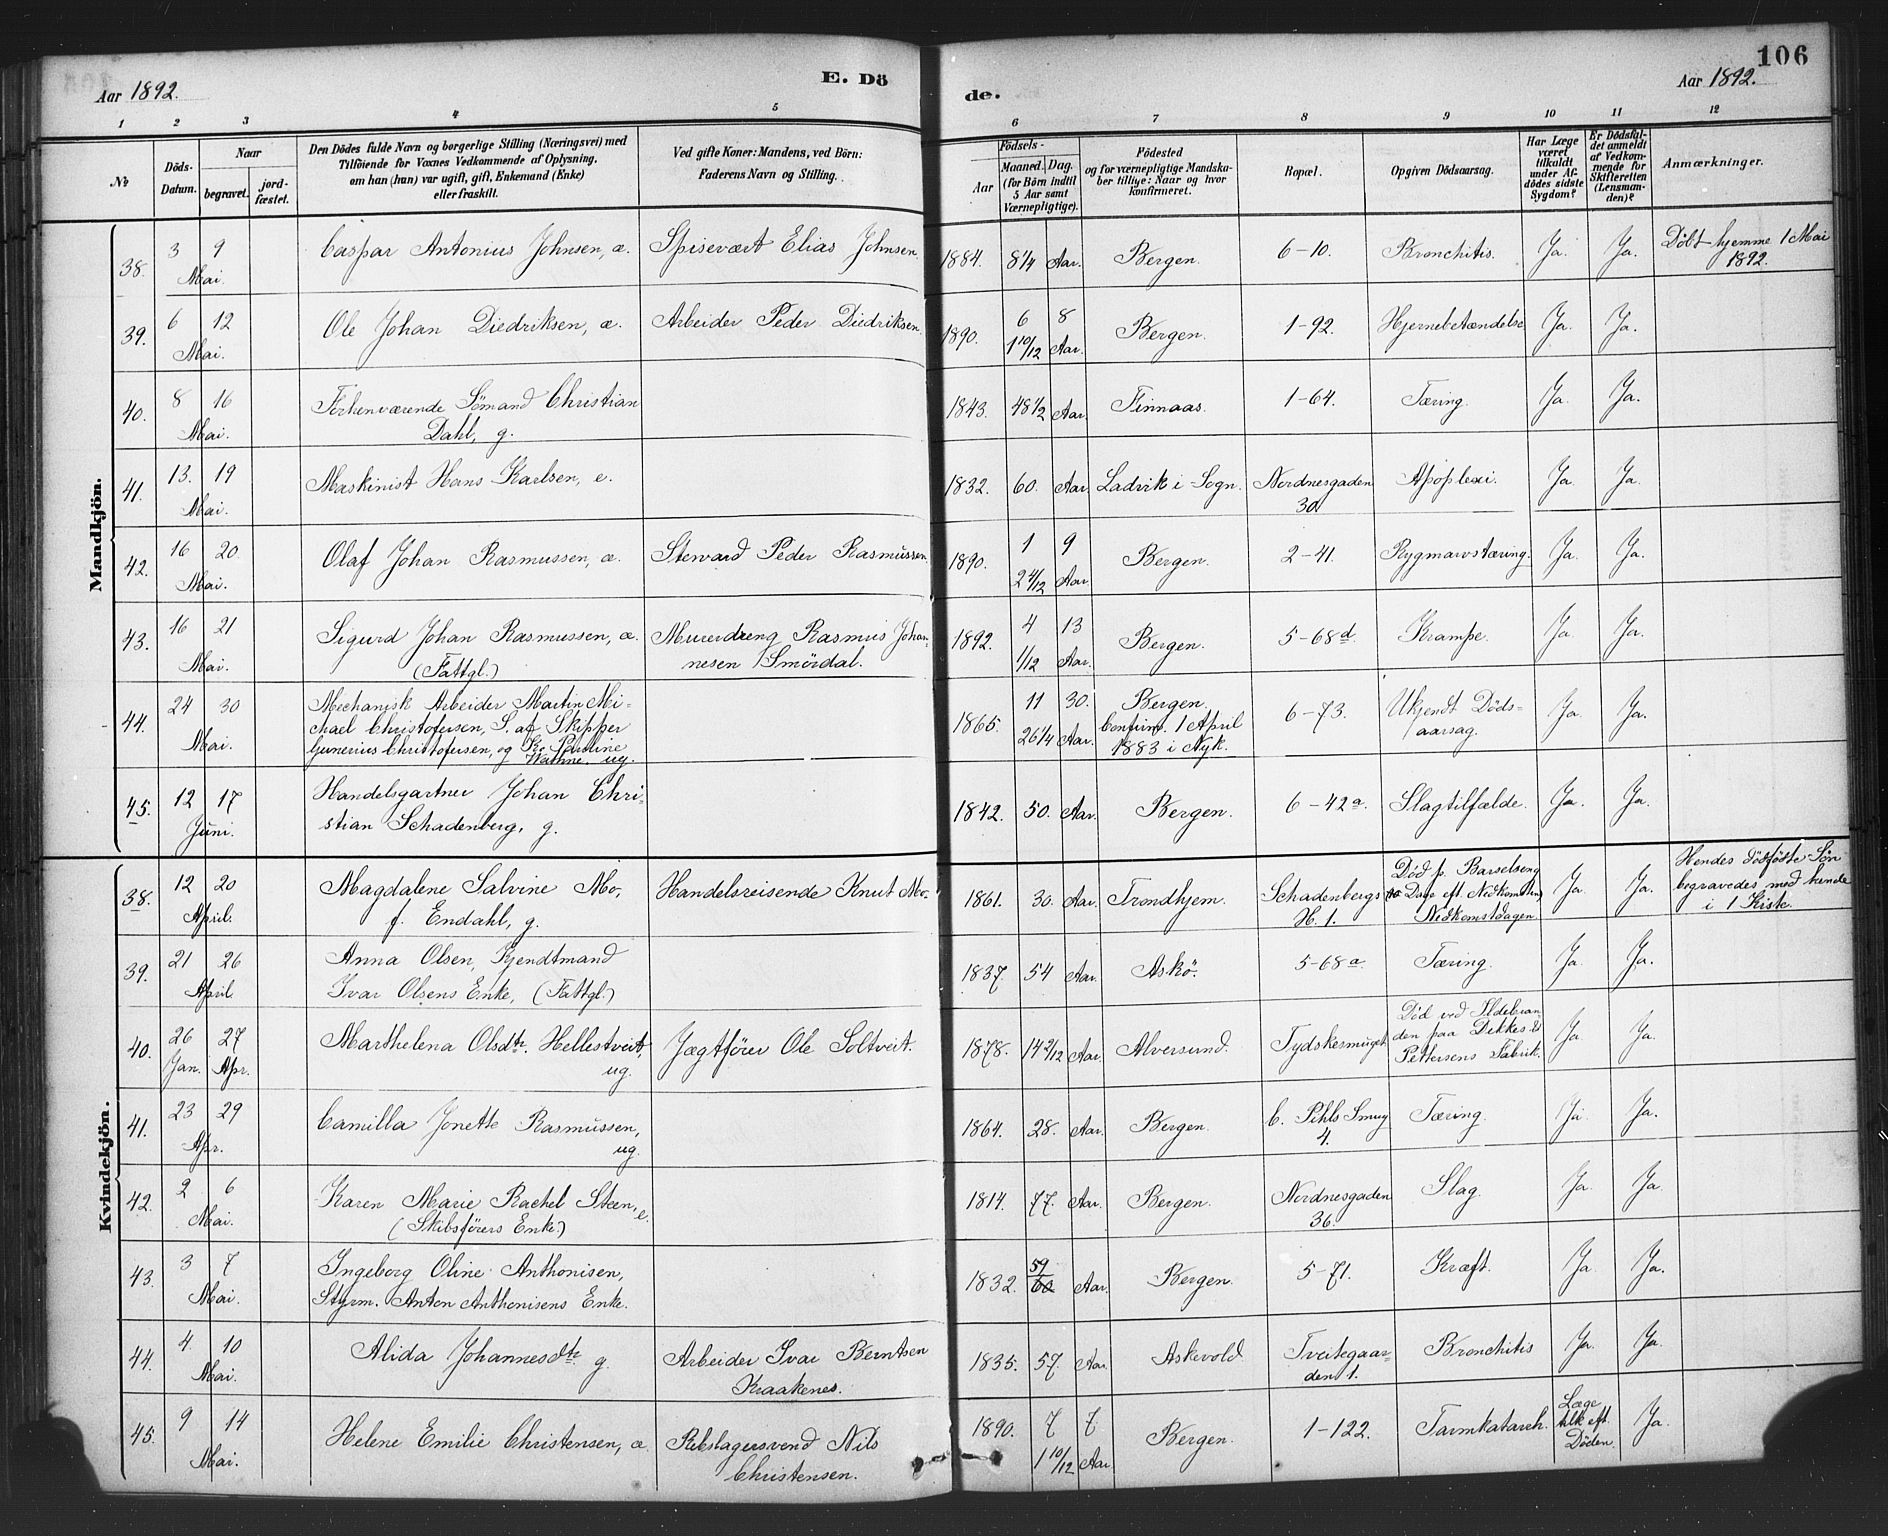 106
Aar 1892. E. Dö
de. Aar 1892.
1 2 3 4 5 6 7 8 9 10 11 12
No
Döds-Datum.
Naar
begravet.
jord-fæstet.
Den Dödes fulde Navn og borgerlige Stilling (Næringsvei) med
Tilföiende for Voxnes Vedkommende af Oplysning,
om han (hun) var ugift, gift, Enkemand (Enke)
eller fraskilt.
Ved gifte Koner: Mandens, ved Börn:
Faderens Navn og Stilling.
Födsels-
Aar
Maaned. Dag.
(for Börn indtil
5 Aar samt
Værnepligtige).
Födested
og for værnepligtige Mandska-
ber tillige: Naar og hvor
konfirmeret.
Bopæl.
Opgiven Dödsaarsag.
Har Læge
været
tilkaldt
under Af-
dödes sidste
Sygdom?
Er Dödsfal-
det anmeldt
af Vedkom-
mende for
Skifteretten
(Lensman-
den)?
Anmærkninger.
Mandkjön.
38. 3 9 Mai. Caspar Antonius Johnsen, æ. Spisevært Elias Johnsen. 1884. 8 1/4 Aar. Bergen. 6-10. Bronchitis. Ja. Ja. Döbt hjemme 1 Mai
1892.
39. 6 12 Mai. Ole Johan Diedriksen, æ. Arbeider Peder Diedriksen. 1890. 6 8
1 10/12 Aar. Bergen. 1-92. Hjernebetændelse Ja. Ja.
40. 8 16 Mai. Forhenværende Sömand Christian
Dahl, g. 1843. 48 1/2 Aar. Finnaas. 1-64. Tæring. Ja. Ja.
41. 13. 19 Mai. Maskinist Hans Karlsen, e. 1832. 60. Aar. Ladvik i Sogn. Nordnesgaden
30 Apoplexi. Ja. Ja.
42. 16 20 Mai. Olaf Johan Rasmussen, æ. Steward Peder Rasmussen. 1890. 1 9
2 4/12 Aar. Bergen. 2-41. Rygmarvstæring. Ja. Ja.
43. 16 21 Mai. Sigurd Johan Rasmussen, æ.
(Fattgl.) Murerdreng Rasmus Johan-
nesen Smördal. 1892. 4 13
1/12 Aar. Bergen. 5-68d. Krampe. Ja. Ja.
44. 24 30 Mai. Mechanisk Arbeider Martin Mi-
chael Christofersen, S. af Skipper
Gunerius Christofersen, og K. Pauline
Wathne. ug. 1865. 11 30.
26 1/4 Aar. Bergen.
Confirm. 1 April
1883 i Nyk. 6-73. Ukjendt Döds-
aarsag. Ja. Ja.
45. 12 17 Juni. Handelsgartner Johan Chri-
stian Schadenberg, g. 1842. 50. Aar. Bergen. 6-42a. Slagtilfælde. Ja. Ja.
Kvindekjön.
38. 12 20 April. Magdalene Salvine Mo,
f. Endahl, g. Handelsreisende Knut Mo. 1861. 30. Aar. Trondhjem. Schadenbergs
H. 1. Död p. Barselseng
Dage eft. Nedkomsten)
Nedkomstdagen Ja. Ja. Hendes dödfödte Sön
begravedes med hende
i 1 Kiste.
39. 21 26 April. Anna Olsen, Kjendtmand
Ivar Olsens Enke, (Fattgl.) 1837. 54 Aar. Askö. 5-68a. Tæring. Ja. Ja.
40. 26 Jan. 27 Apr. Marthelena Olsdtr. Hellestveit,
ug. Jægtförer Ole Soltveit. 1878. 14 2/12 Aar. Alversund. Tydskesmuget Död ved Ildebran-
den paa Dekkes &
Pettersens Fabrik. Ja. Ja.
41. 23 29 Apr. Camilla Jonette Rasmussen,
ug. 1864. 28. Aar. Bergen. C. Pihls Smug
4. Tæring. Ja Ja.
42. 2 6 Mai. Karen Marie Rachel Steen, e.
(Skibsförers Enke) 1814. 77. Aar. Bergen. Nordnesgaden
36. Slag. Ja. Ja.
43. 3 7 Mai. Ingeborg Oline Anthonisen,
Styrm. Anton Anthonisens Enke. 1832. 59
60 Aar. Bergen. 5-71. Kræft. Ja Ja.
44. 4. 10 Mai. Alida Johannesdtr. g. Arbeider Ivar Berntsen
Kraakenes. 1835. 57. Aar. Askevold Tveitegaar-
den 1. Bronchitis Ja. Ja.
45. 9 14 Mai. Helene Emilie Christensen, æ. Rebslagersvend Nils
Christensen. 1890. 7 7
1 10/12 Aar. Bergen. 1-122. Tarmkatarrh. Læge
tilk. eft.
Döden. Ja.